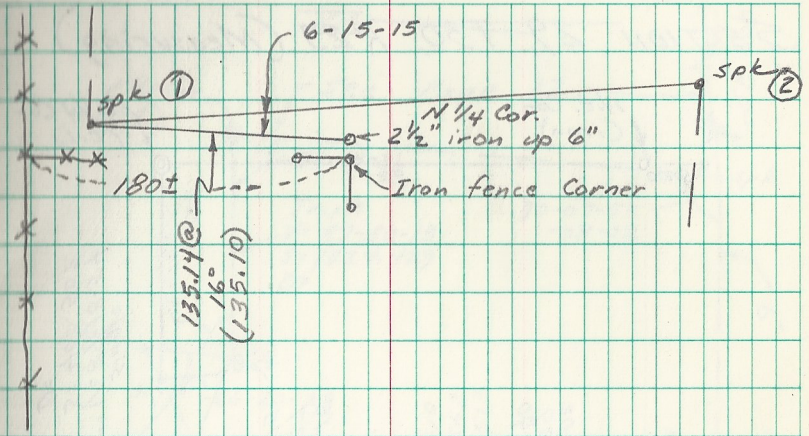 6-15-15
spk ①
spk ②
N 1/4 Cor.
2 1/2" iron up 6"
180±
Iron fence Corner
135.14 @
16°
(135.10)